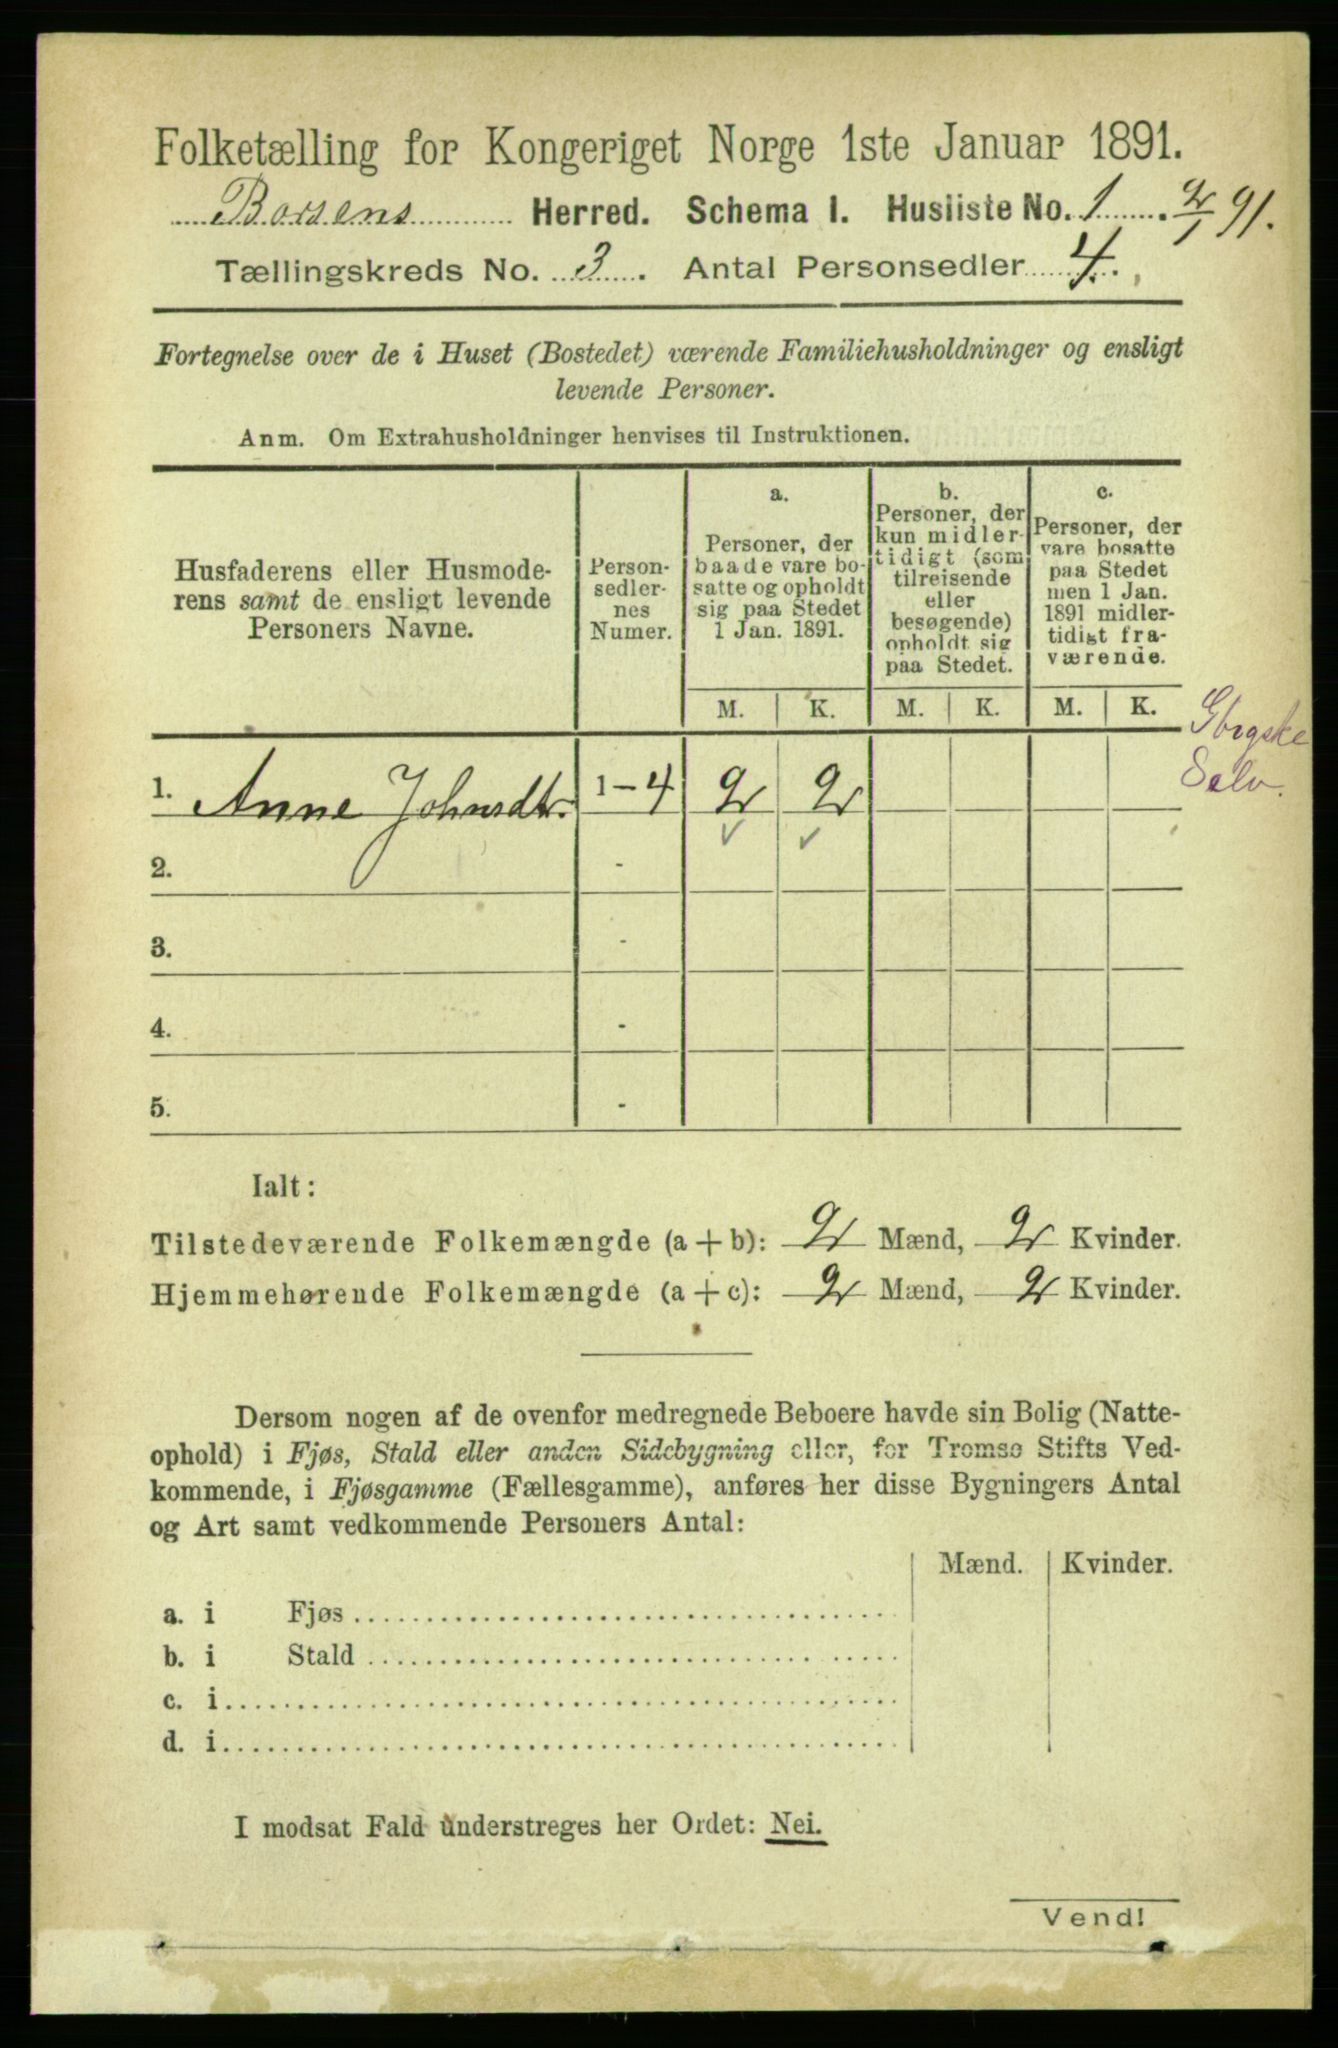 Folketælling for Kongeriget Norge 1ste Januar 1891.
Børsens Herred. Schema 1. Husliste No. 1. 2/1 91.
Tællingskreds No. 3. Antal Personsedler 4.
Fortegnelse over de i Huset (Bostedet) værende Familiehusholdninger og ensligt
levende Personer.
Anm. Om Extrahusholdninger henvises til Instruktionen.
Husfaderens eller Husmode-
rens samt de ensligt levende
Personers Navne.
Person-
sedler-
nes
Numer.
a.
Personer, der
baade vare bo-
satte og opholdt
sig paa Stedet
1 Jan. 1891.
b.
Personer, der
kun midler-
tidigt (som
tilreisende
eller
besøgende)
opholdt sig
paa Stedet.
c.
Personer, der
vare bosatte
paa Stedet
men 1 Jan.
1891 midler-
tidigt fra-
værende.
M. K. M. K. M. K.
Selv.
1. Anne Johnsdtr. 1-4 2 2
2. -
3. -
4. -
5. -
Ialt:
Tilstedeværende Folkemængde (a + b): 2 Mænd, 2 Kvinder.
Hjemmehørende Folkemængde (a + c): 2 Mænd, 2 Kvinder.
Dersom nogen af de ovenfor medregnede Beboere havde sin Bolig (Natte-
ophold) i Fjøs, Stald eller anden Sidebygning eller, for Tromsø Stifts Ved-
kommende, i Fjøsgamme (Fællesgamme), anføres her disse Bygningers Antal
og Art samt vedkommende Personers Antal:
Mænd. Kvinder.
a. i Fjøs
b. i Stald
c. i
d. i
I modsat Fald understreges her Ordet: Nei.
Vend!